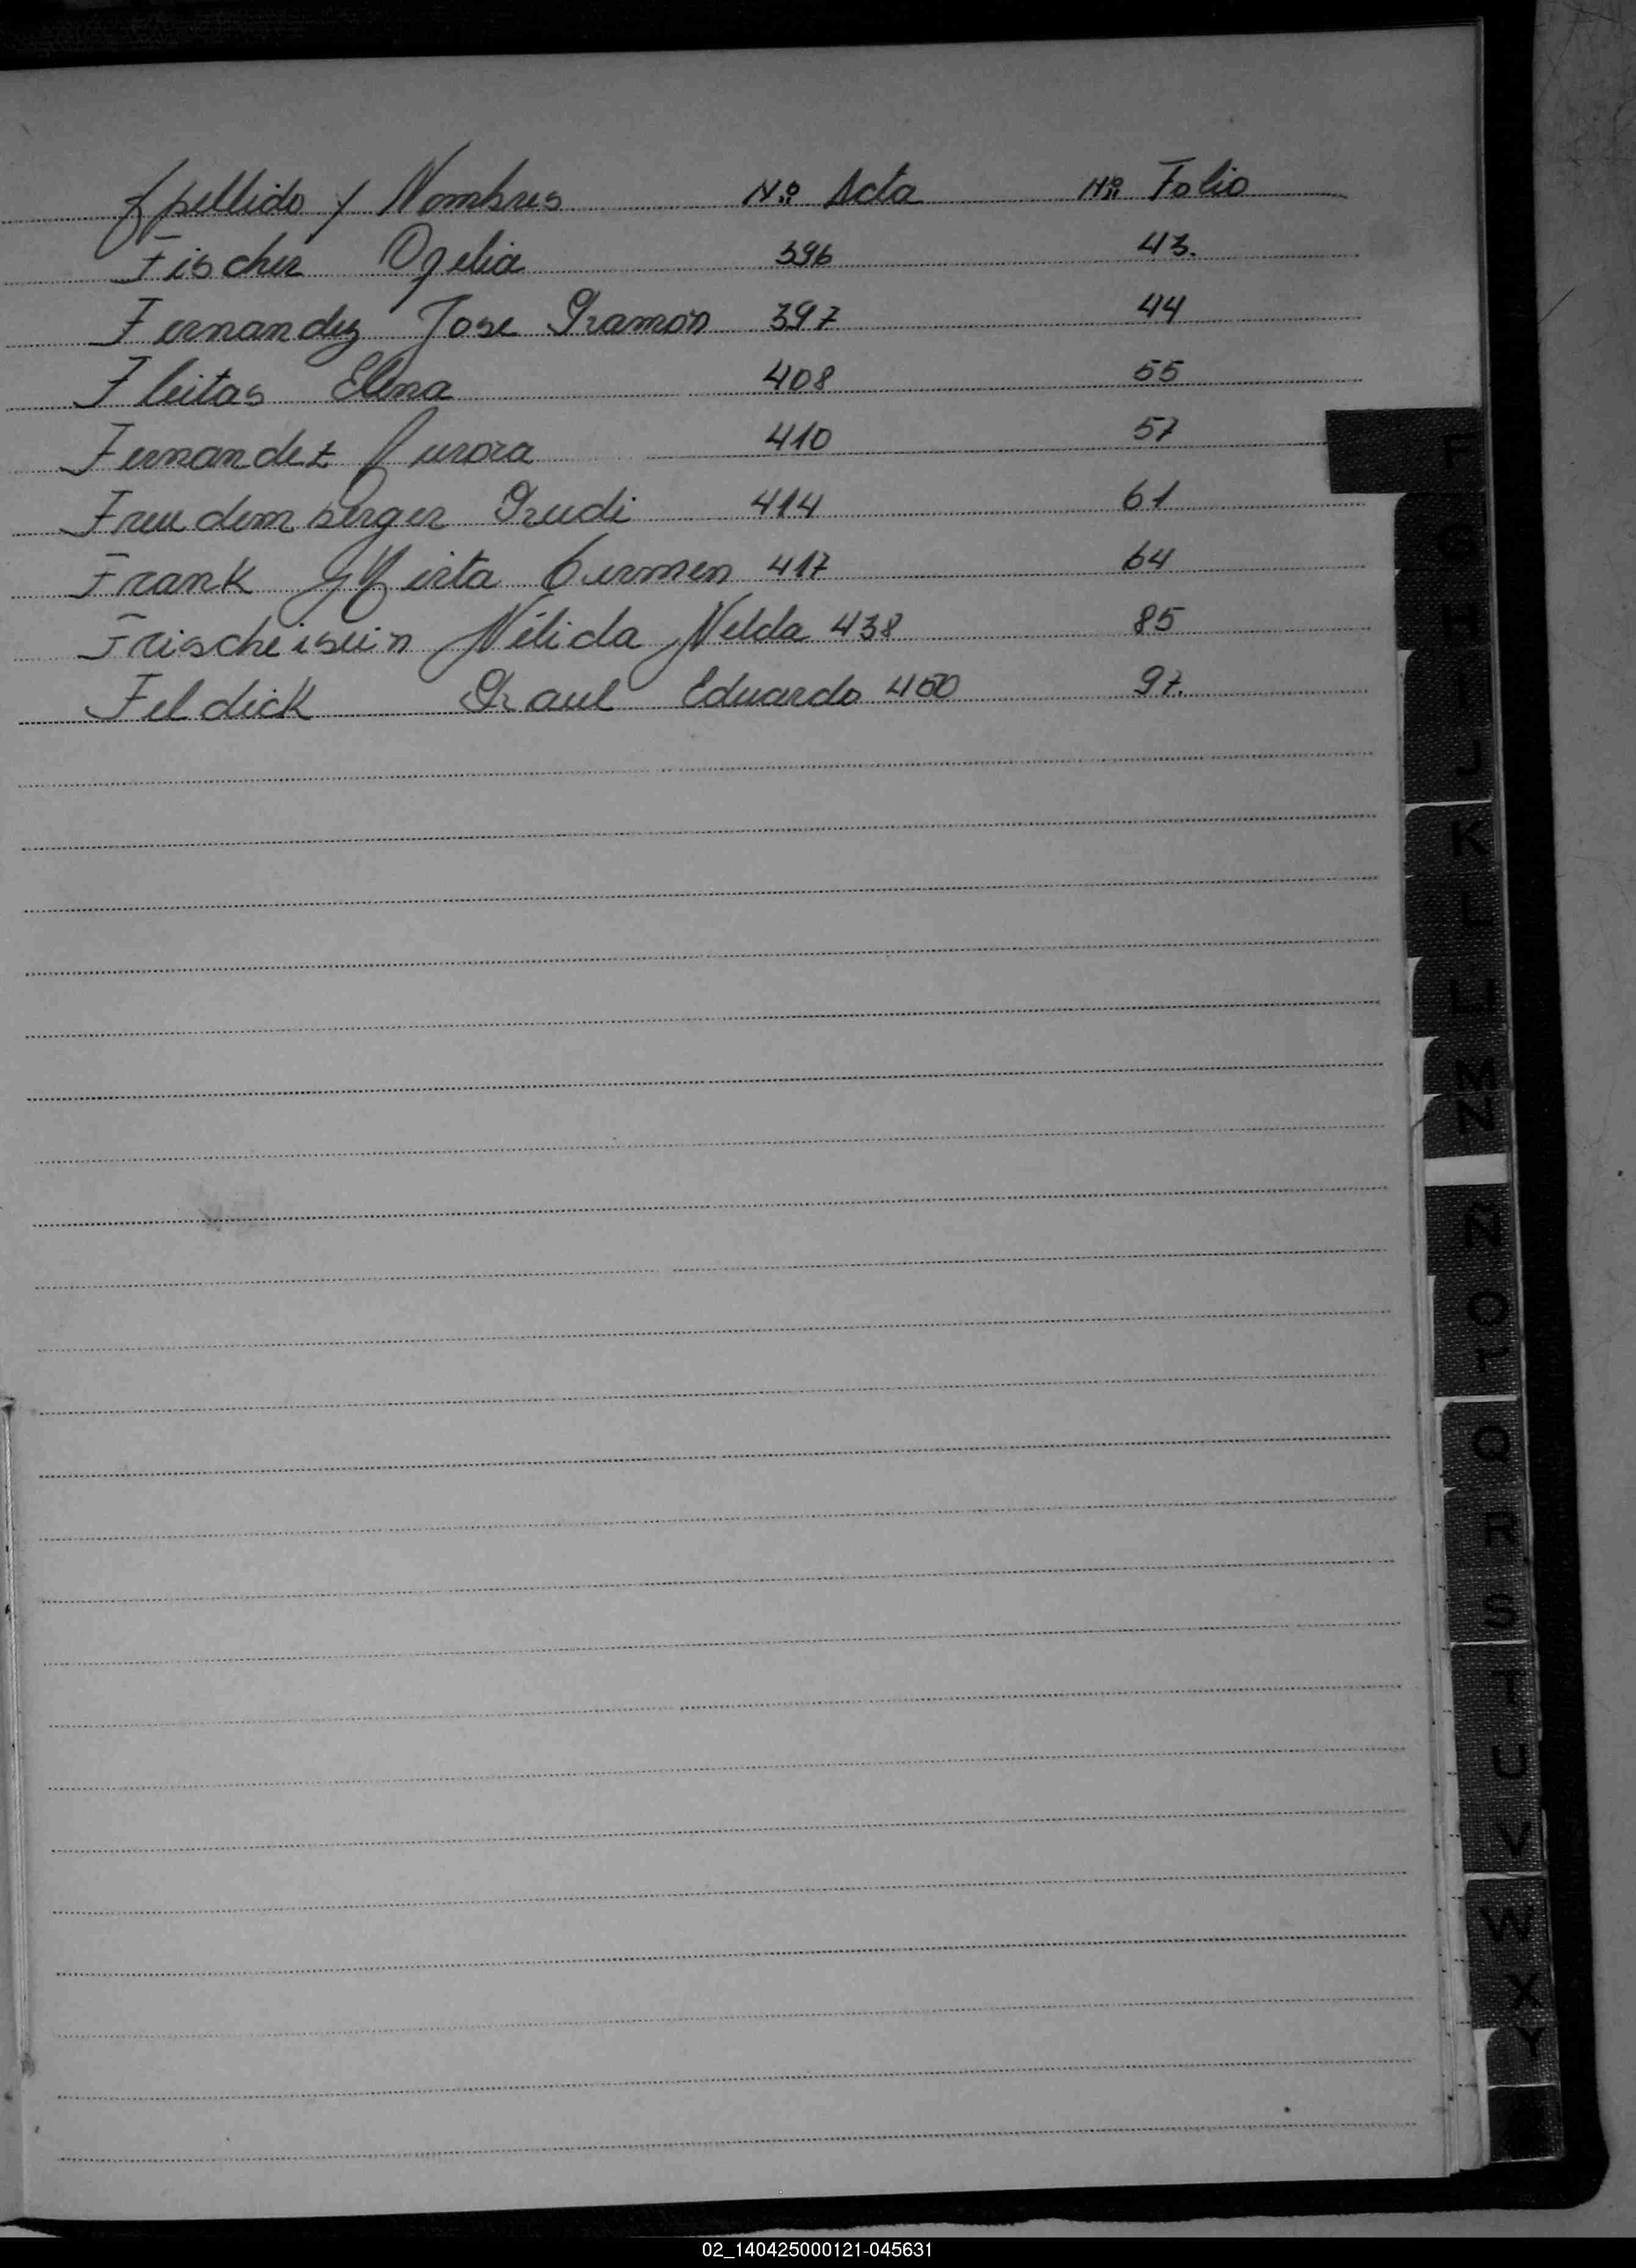 Apellido y Nombres Nº Acta Nº Folio
Fischer Ofelia 396 43.
Fernandez Jose Ramón 397 44
Fleitas Elena 408 55
Fernandez Aurora 410 57
Freudemberger Rudi 414 61
Frank Mirta Carmen 417 64
Frischeisein Nélida Nelda 438 85
Feldick Raul Eduardo 450 97.
F
G
H
I
J
K
L
LL
M
N
Ñ
O
P
Q
R
S
T
U
V
W
X
Y
02_140425000121-045631